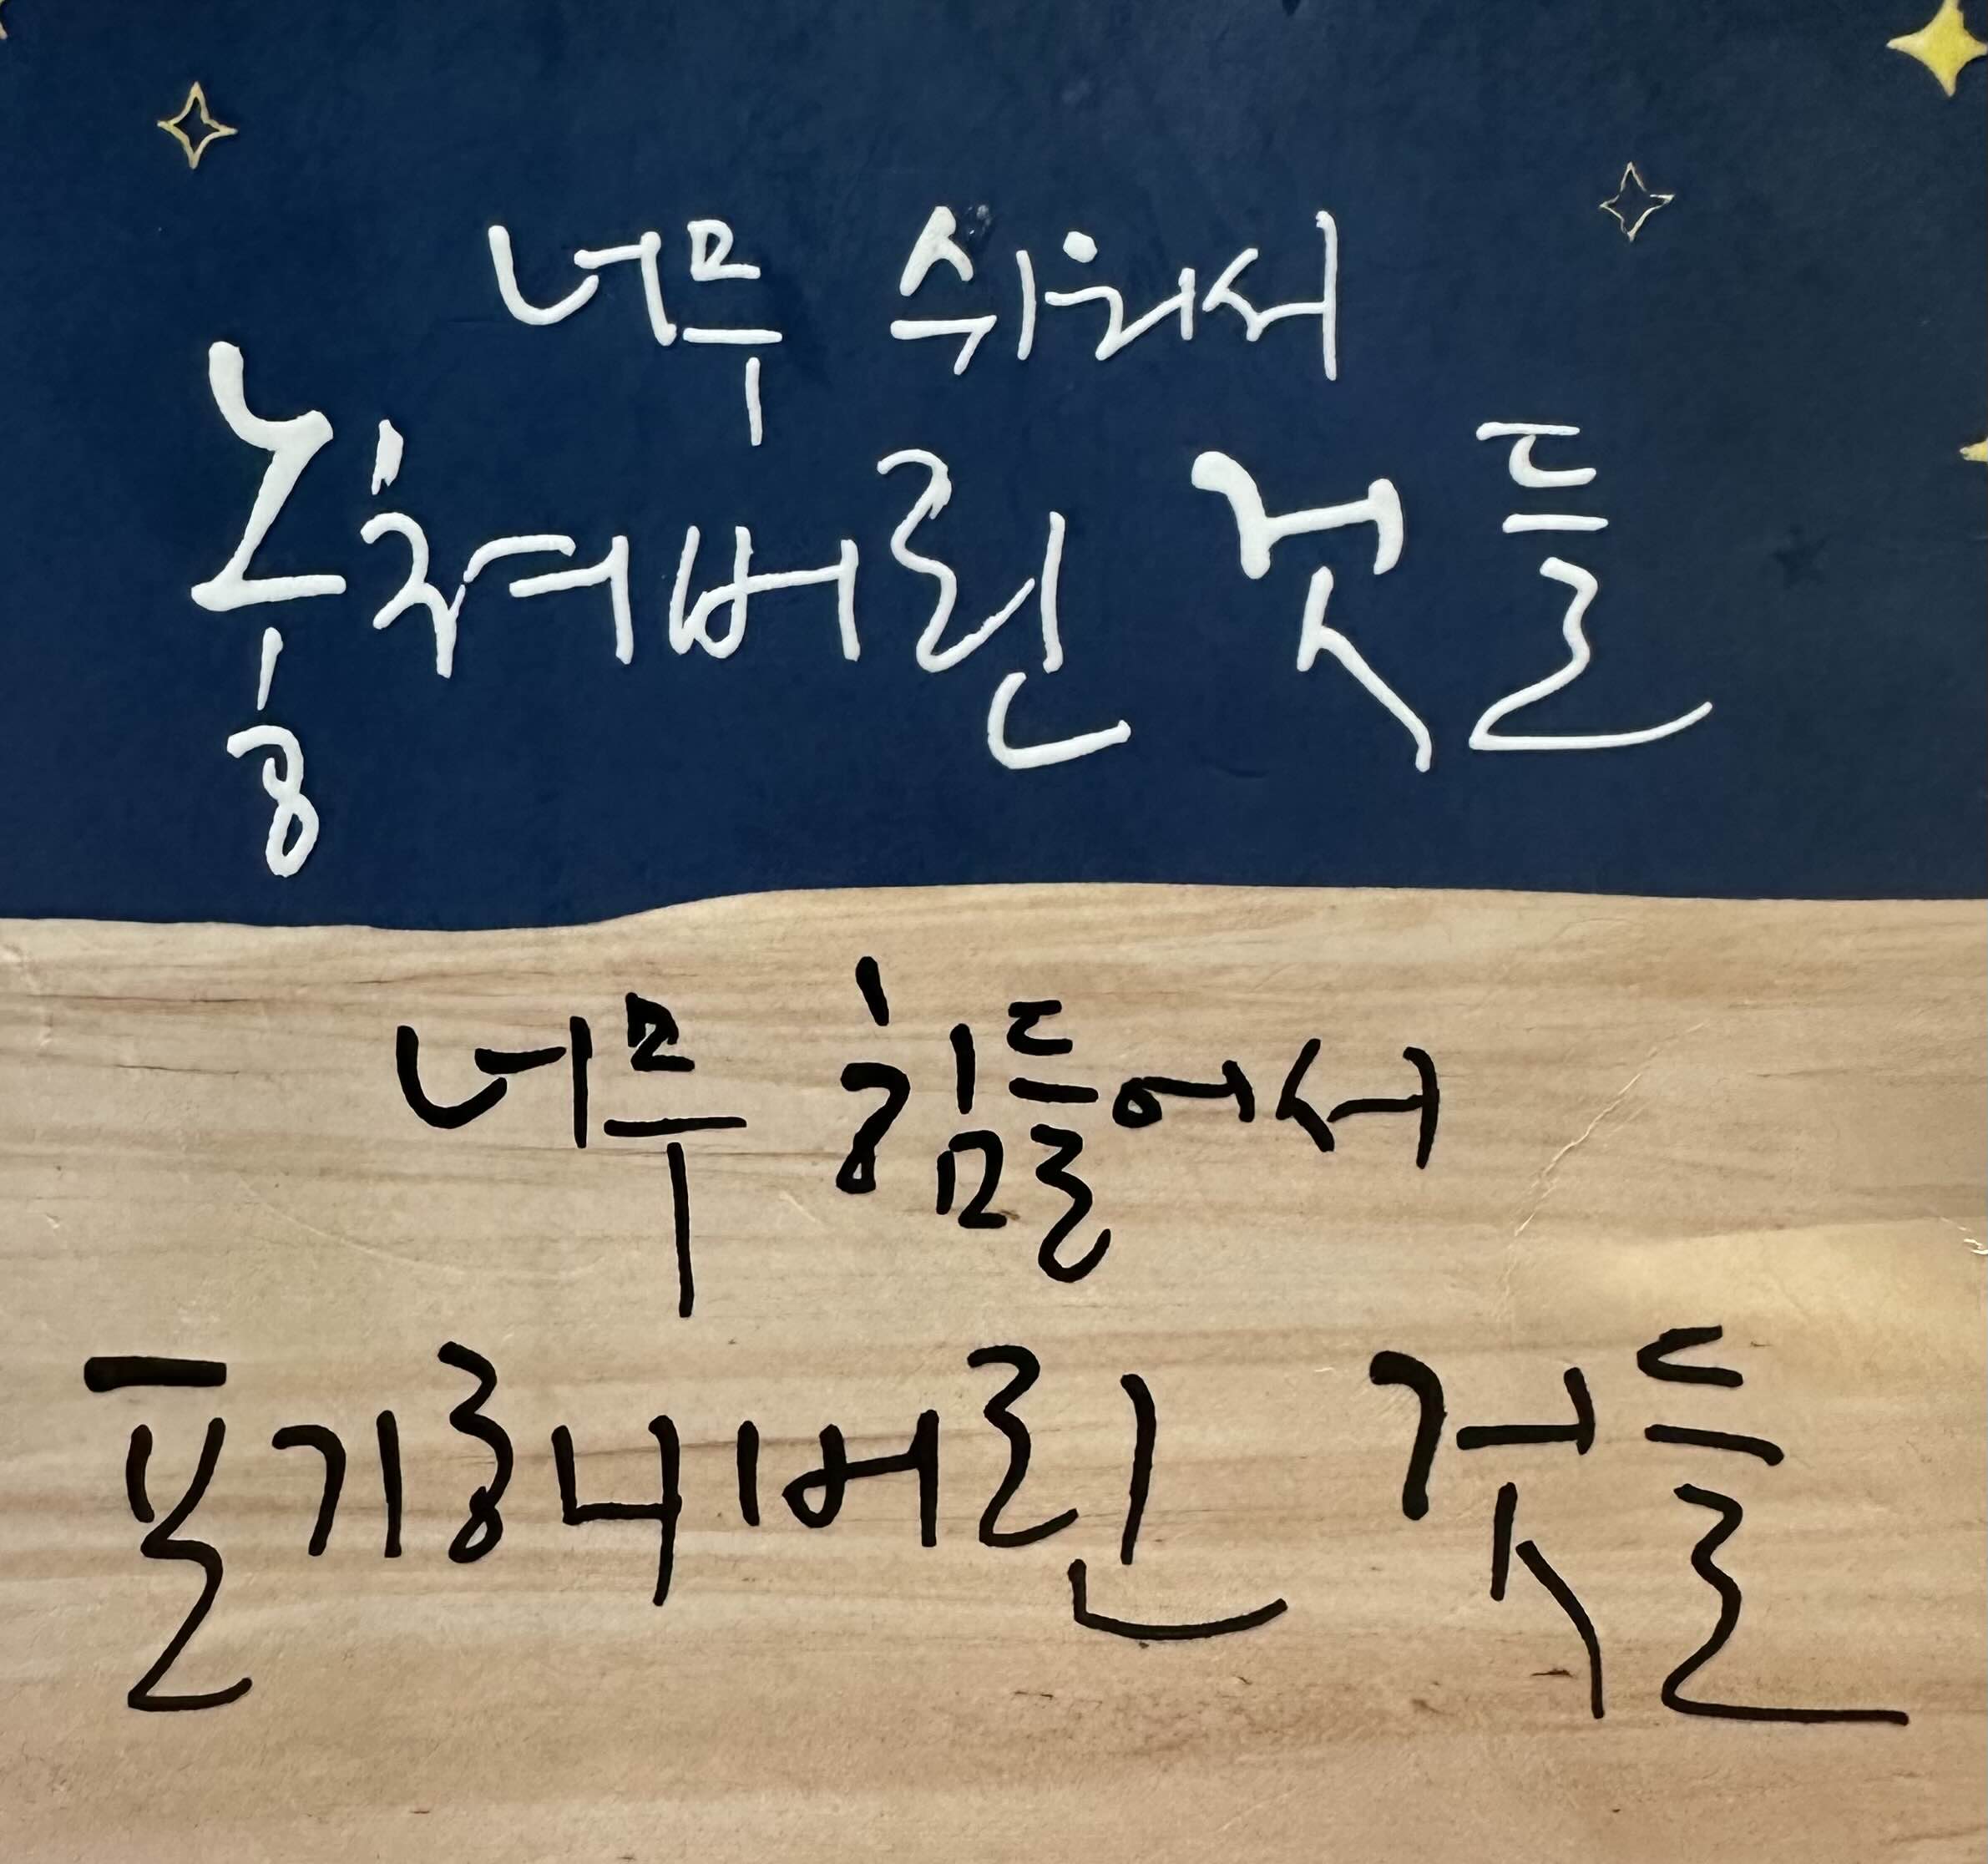 너무 쉬워서
놓쳐버린 것들
너무 힘들어서
포기해버린 것들